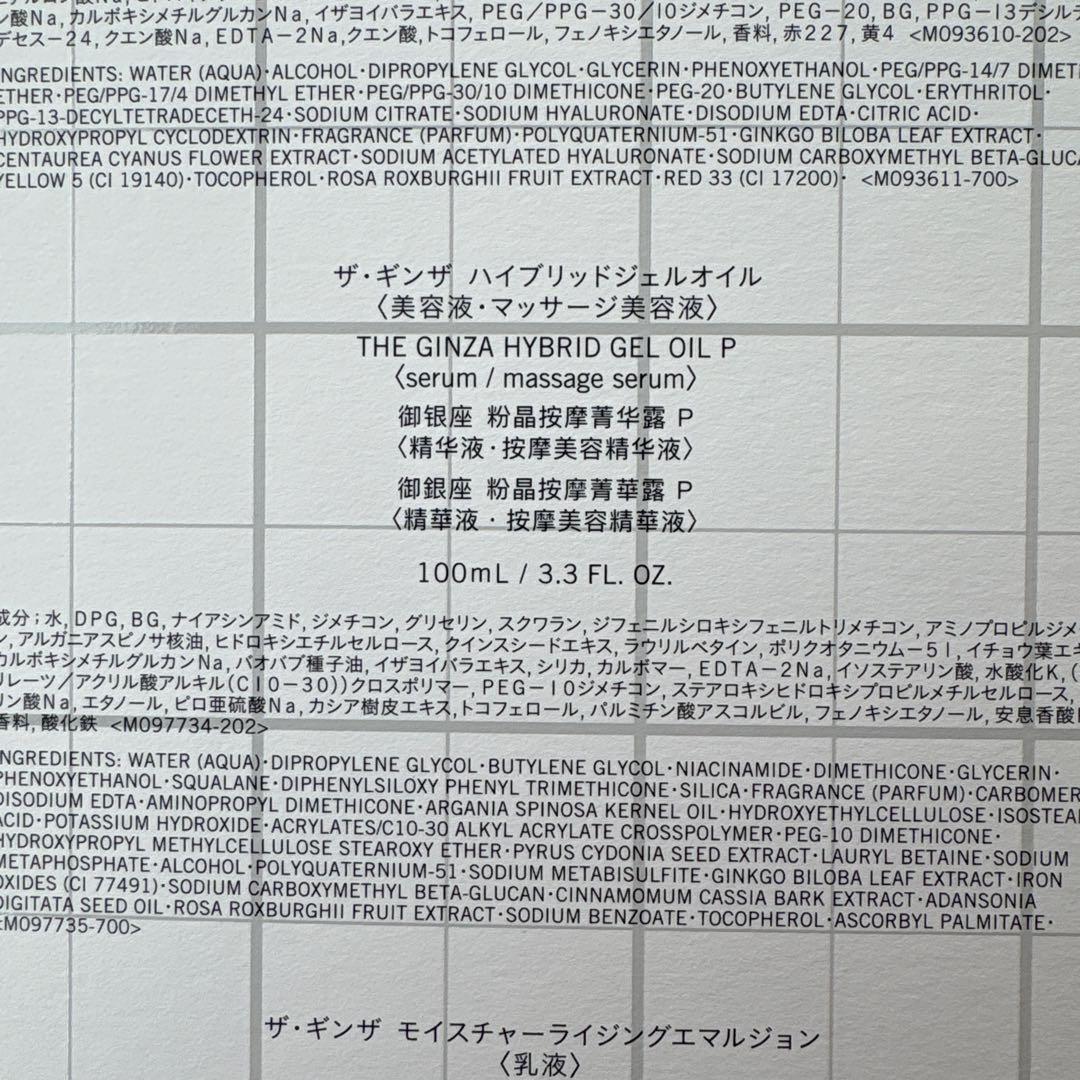 ン酸Na, カルボキシメチルグルカンNa, イザヨイバラエキス, PEG/PPG-30/10ジメチコン, PEG-20, BG, PPG-13デシルテ
デセス-24, クエン酸Na, EDTA-2Na,クエン酸,トコフェロール, フェノキシエタノール, 香料, 赤227, 黄4 <M093610-202>
NGREDIENTS: WATER (AQUA)・ALCOHOL・DIPROPYLENE GLYCOL・GLYCERIN・PHENOXYETHANOL・PEG/PPG-14/7 DIMET
ETHER・PEG/PPG-17/4 DIMETHYL ETHER・PEG/PPG-30/10 DIMETHICONE・PEG-20・BUTYLENE GLYCOL・ERYTHRITOL・
PPG-13-DECYLTETRADECETH-24・SODIUM CITRATE・SODIUM HYALURONATE・DISODIUM EDTA・CITRIC ACID・
HYDROXYPROPYL CYCLODEXTRIN・FRAGRANCE (PARFUM)・POLYQUATERNIUM-51・GINKGO BILOBA LEAF EXTRACT・
CENTAUREA CYANUS FLOWER EXTRACT・SODIUM ACETYLATED HYALURONATE・SODIUM CARBOXYMETHYL BETA-GLUCA
YELLOW 5 (CI 19140)・TOCOPHEROL・ROSA ROXBURGHII FRUIT EXTRACT・RED 33 (CI 17200)・ <M093611-700>
ザ・ギンザ ハイブリッドジェルオイル
〈美容液・マッサージ美容液〉
THE GINZA HYBRID GEL OIL P
〈serum / massage serum〉
御银座 粉晶按摩菁华露 P
〈精华液・按摩美容精华液〉
御銀座 粉晶按摩菁華露 P
〈精華液・按摩美容精華液〉
100mL / 3.3 FL. OZ.
成分；水, DPG, BG, ナイアシンアミド, ジメチコン, グリセリン, スクワラン, ジフェニルシロキシフェニルトリメチコン, アミノプロピルジメ
ン, アルガニアスピノサ核油, ヒドロキシエチルセルロース, クインスシードエキス, ラウリルベタイン, ポリクオタニウム-51, イチョウ葉エキ
カルボキシメチルグルカンNa, バオバブ種子油, イザヨイバラエキス, シリカ, カルボマー, EDTA-2Na, イソステアリン酸, 水酸化K, (
リレーツ/アクリル酸アルキル(C10-30))クロスポリマー, PEG-10ジメチコン, ステアロキシヒドロキシプロピルメチルセルロース,
リン酸Na, エタノール, ピロ亜硫酸Na, カシア樹皮エキス,トコフェロール, パルミチン酸アスコルビル, フェノキシエタノール, 安息香酸
香料, 酸化鉄 <M097734-202>
NGREDIENTS: WATER (AQUA)・DIPROPYLENE GLYCOL・BUTYLENE GLYCOL・NIACINAMIDE・DIMETHICONE・GLYCERIN・
PHENOXYETHANOL・SQUALANE・DIPHENYLSILOXY PHENYL TRIMETHICONE・SILICA・FRAGRANCE (PARFUM)・CARBOMER
DISODIUM EDTA・AMINOPROPYL DIMETHICONE・ARGANIA SPINOSA KERNEL OIL・HYDROXYETHYLCELLULOSE・ISOSTEA
ACID・POTASSIUM HYDROXIDE・ACRYLATES/C10-30 ALKYL ACRYLATE CROSSPOLYMER・PEG-10 DIMETHICONE・
HYDROXYPROPYL METHYLCELLULOSE STEAROXY ETHER・PYRUS CYDONIA SEED EXTRACT・LAURYL BETAINE・SODIUM
METAPHOSPHATE・ALCOHOL・POLYQUATERNIUM-51・SODIUM METABISULFITE・GINKGO BILOBA LEAF EXTRACT・IRON
OXIDES (CI 77491)・SODIUM CARBOXYMETHYL BETA-GLUCAN・CINNAMOMUM CASSIA BARK EXTRACT・ADANSONIA
DIGITATA SEED OIL・ROSA ROXBURGHII FRUIT EXTRACT・SODIUM BENZOATE・TOCOPHEROL・ASCORBYL PALMITATE・
<M097735-700>
ザ・ギンザ モイスチャーライジングエマルジョン
〈乳液〉